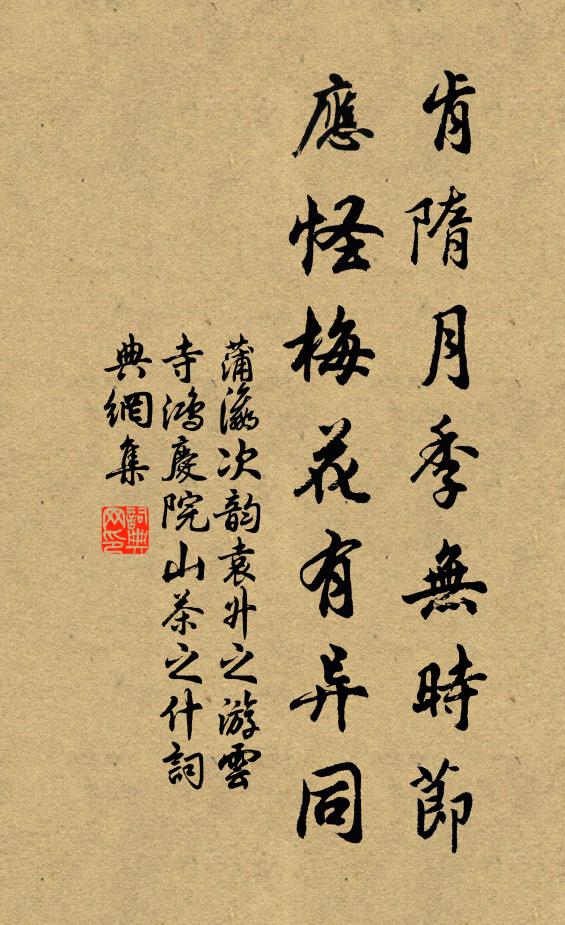 肯隋月季無時節
應怪梅花有异同
蒲瀛次韵袁升之游雲
寺鴻慶院山茶之什詞
典網集
詞典
网印